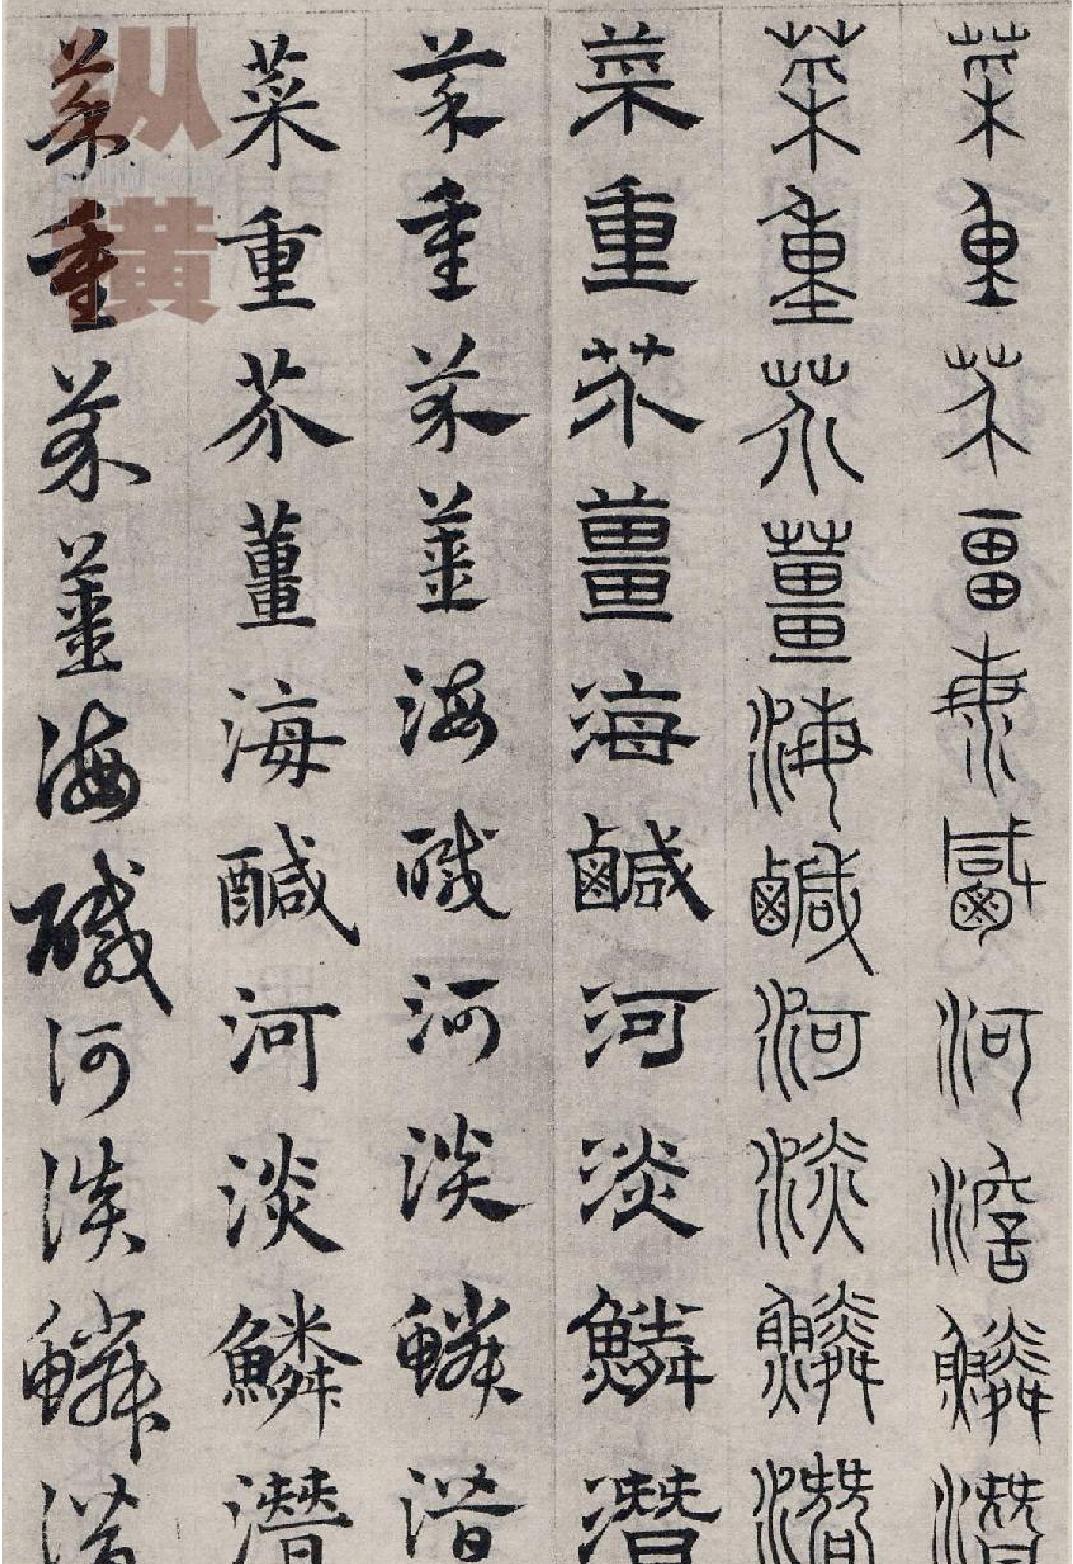 菜重芥畺海鹹河澹鱗潛
菜重芥薑海鹹河淡鱗潛
菜重芥薑海鹹河淡鱗潛
菜重芥薑海醎河淡鱗潛
菜重芥薑海醎河淡鱗潛
菜重芥薑海醎河淡鱗潛
纵横